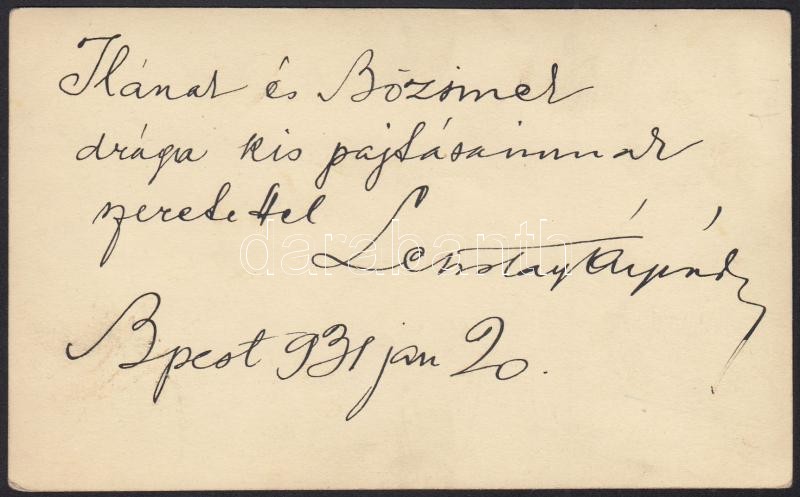 Ilának és Bözsinek
drága kis pajtásaimnak
szeretettel
Árpád
Bpest 931 jan 20.
darabanth